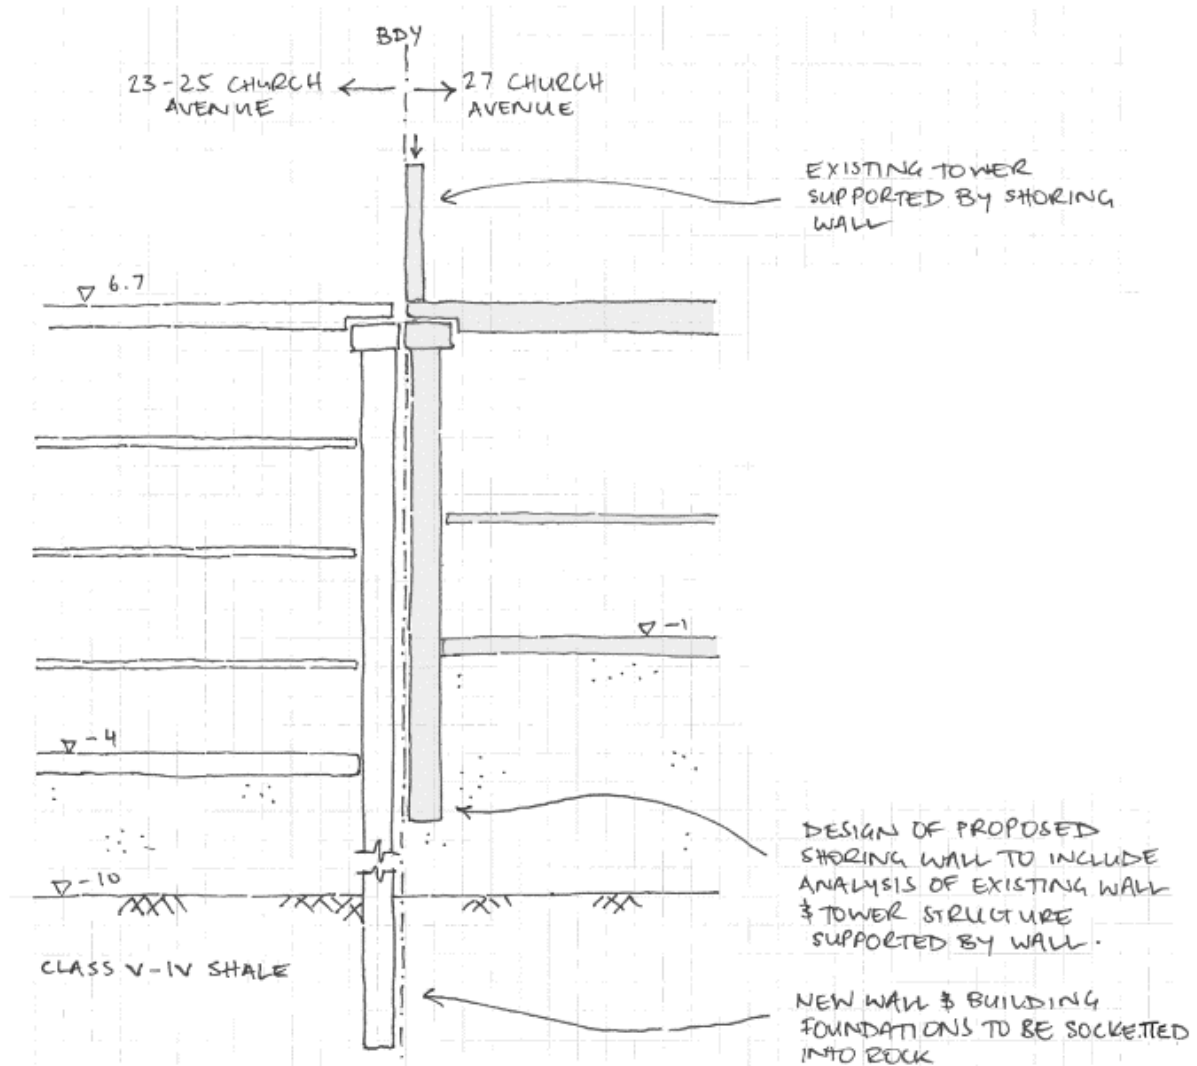 BDY
23-25 CHURCH
AVENUE
27 CHURCH
AVENUE
EXISTING TOWER
SUPPORTED BY SHORING
WALL
6.7
-1
-4
DESIGN OF PROPOSED
SHORING WALL TO INCLUDE
ANALYSIS OF EXISTING WALL
& TOWER STRUCTURE
SUPPORTED BY WALL.
-10
CLASS V-IV SHALE
NEW WALL & BUILDING
FOUNDATIONS TO BE SOCKETTED
INTO ROCK